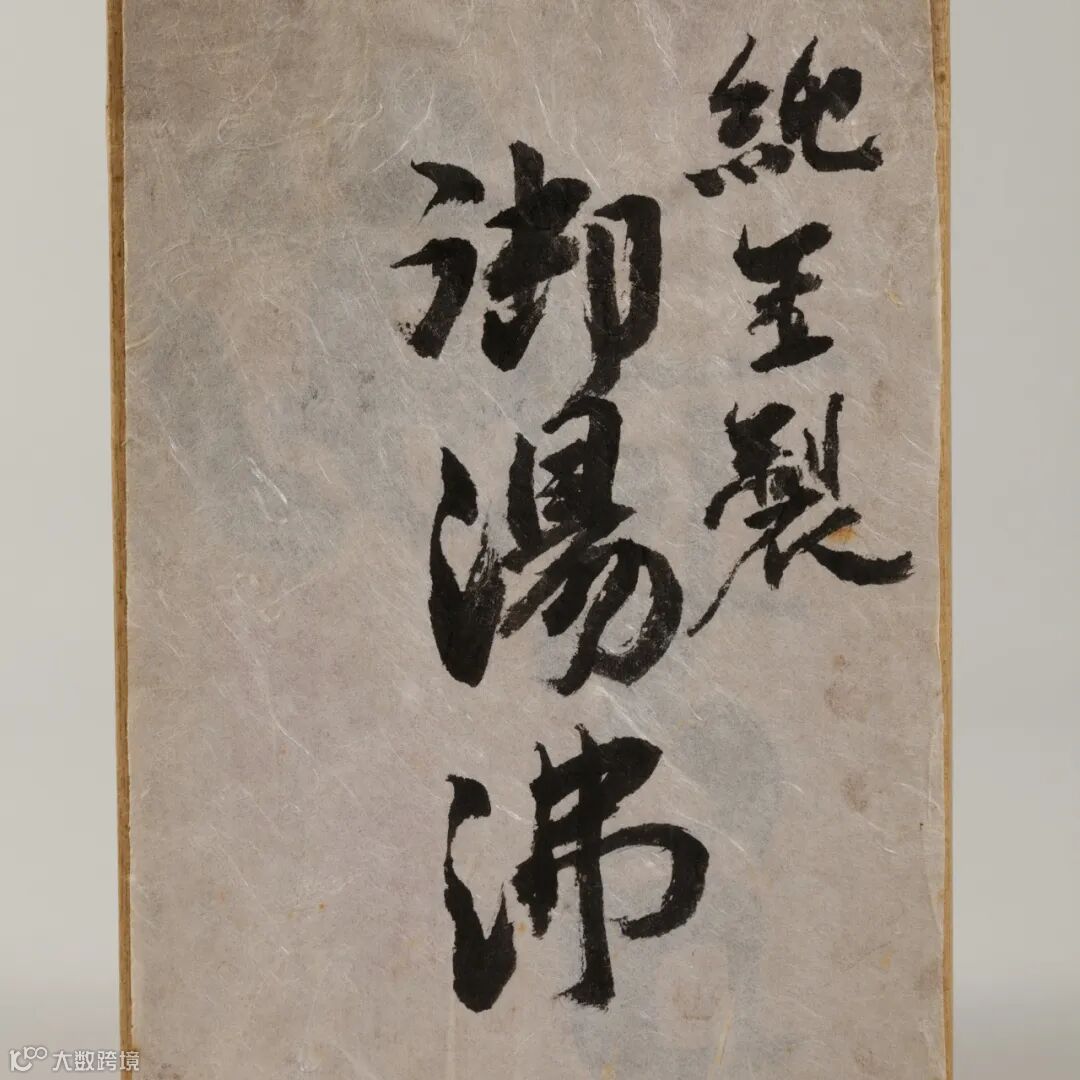 純金製
御湯沸
大数跨境